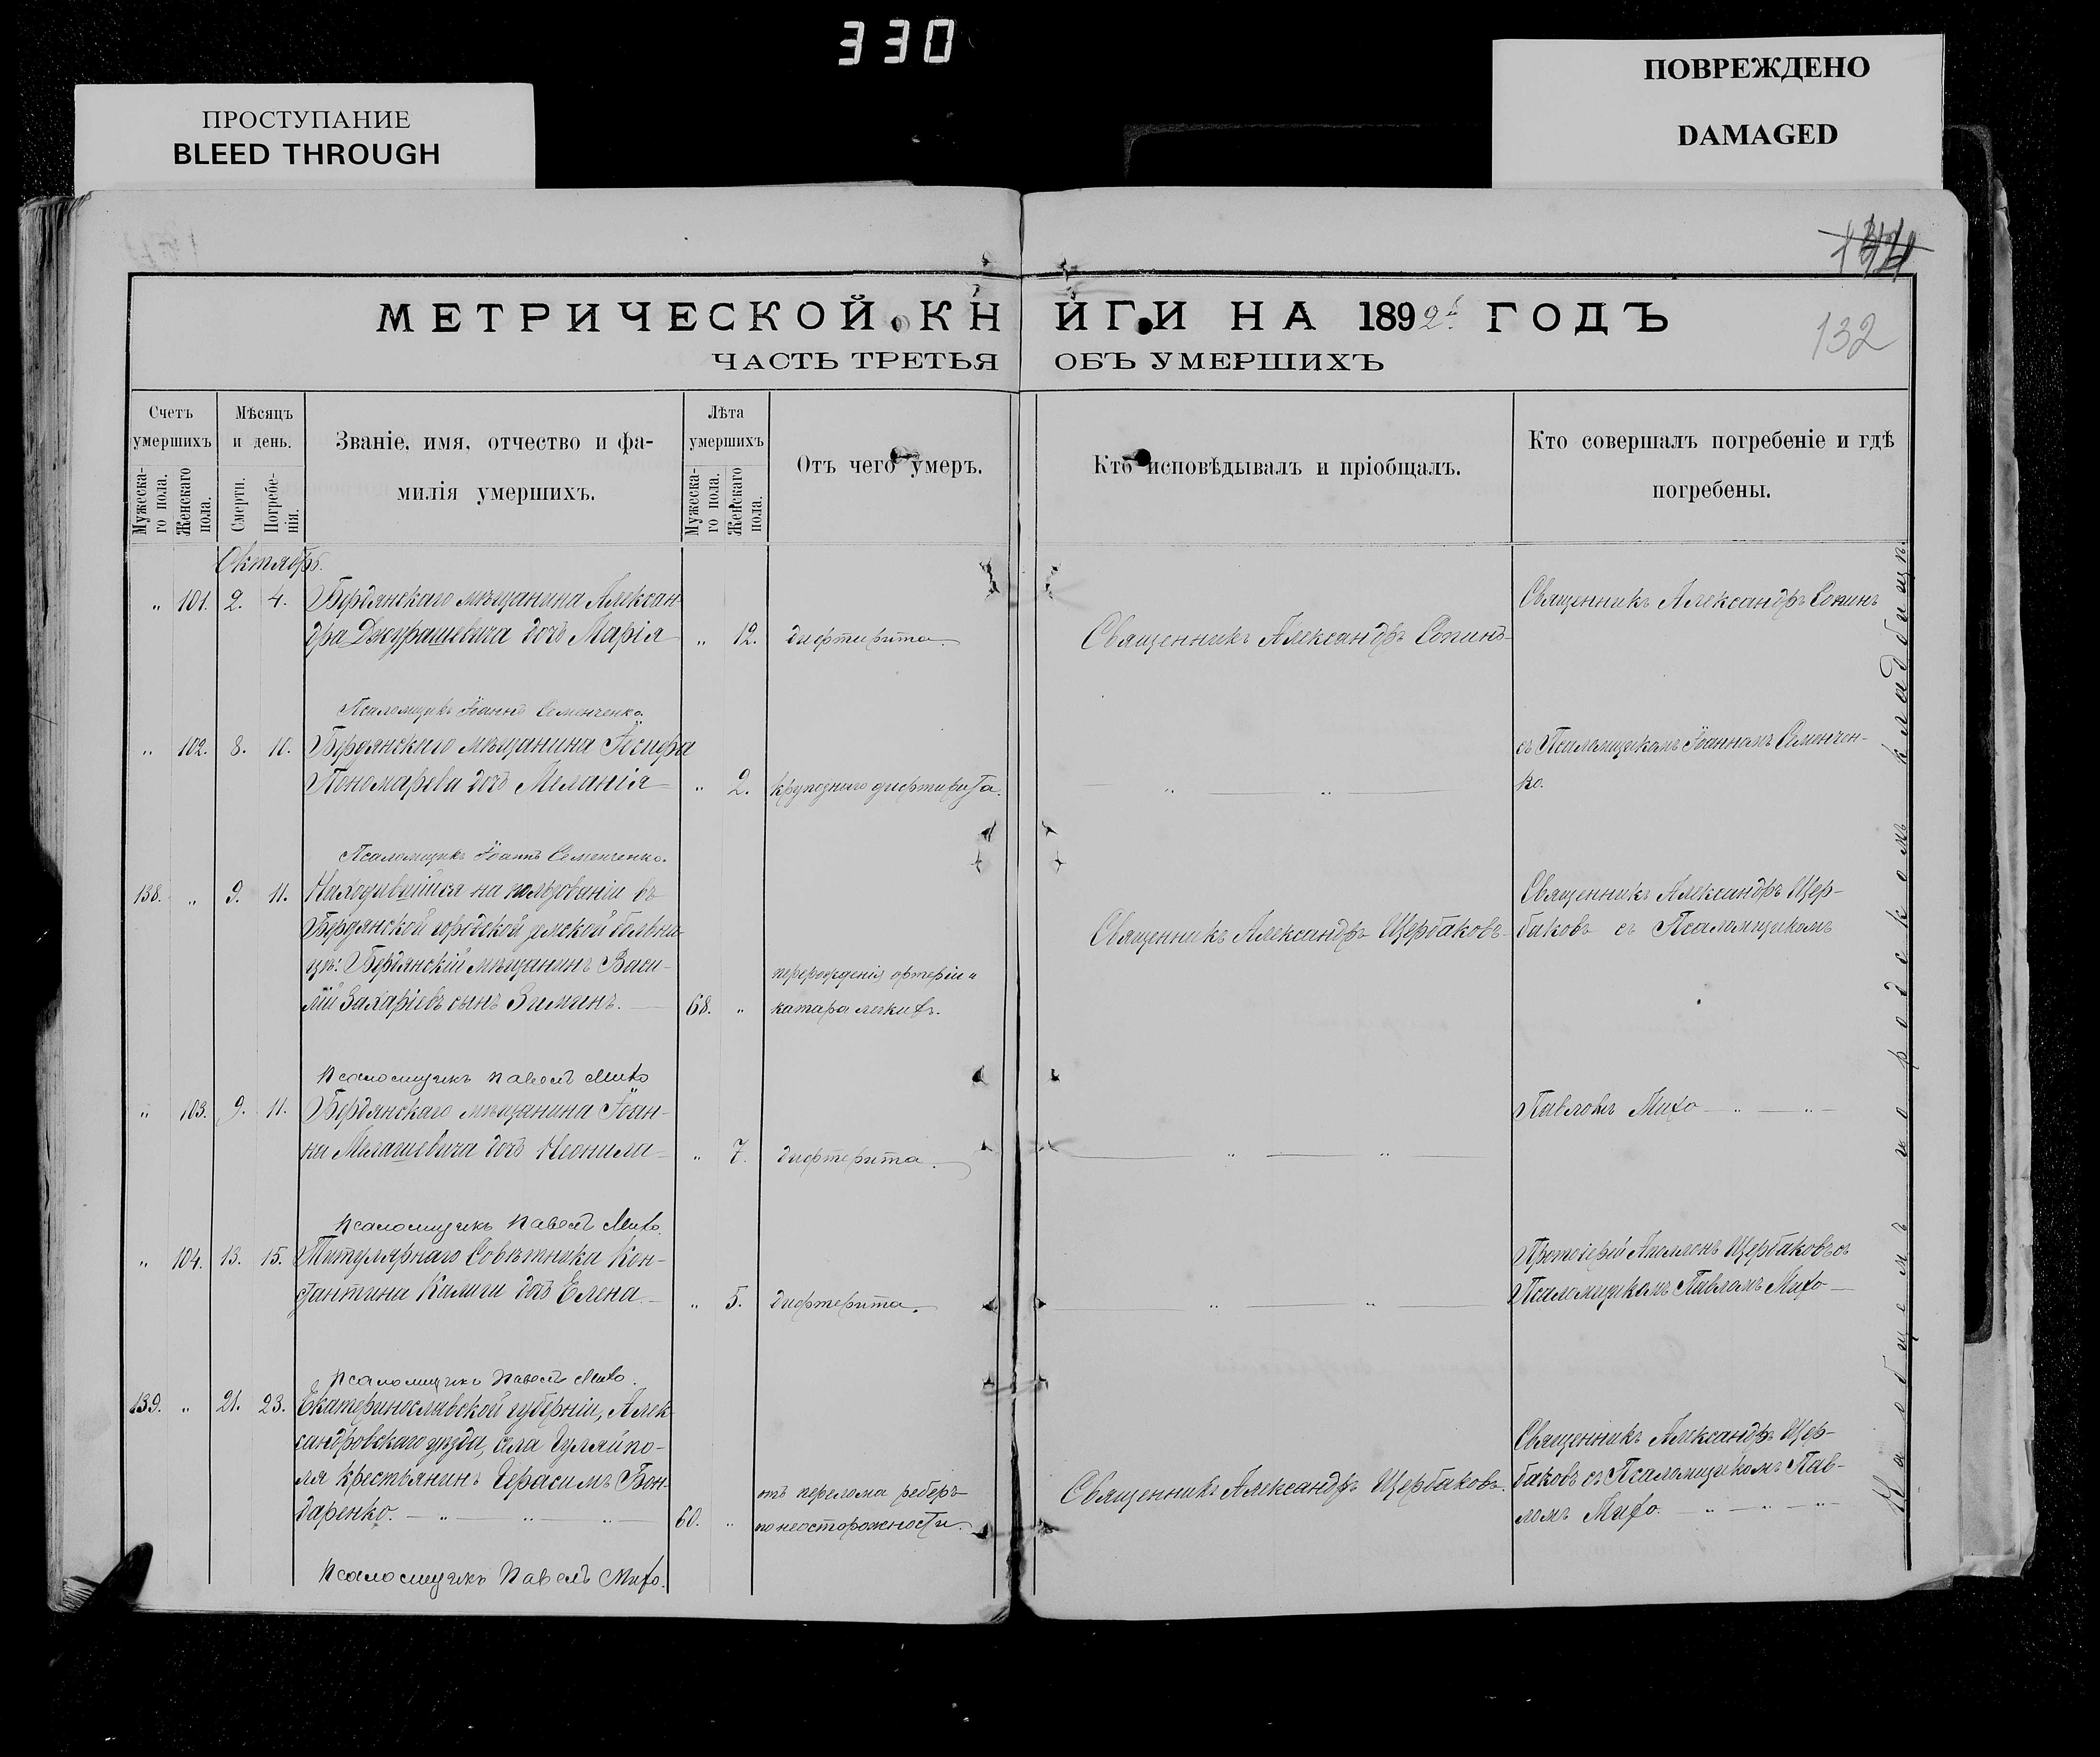 330
ПРОСТУПАНИЕ
BLEED THROUGH
ПОВРЕЖДЕНО
DAMAGED
132
МЕТРИЧЕСКОЙ КНИГИ НА 1892й ГОДЪ
ЧАСТЬ ТРЕТЬЯ ОБЪ УМЕРШИХЪ
Счетъ умершихъ
Мужеска-го пола.
Женскаго пола.
Мѣсяцъ и день.
Смерти.
Погребе-нія.
Званіе, имя, отчество и фа-
милія умершихъ.
Лѣта умершихъ
Мужеска-го пола.
Женскаго пола.
Отъ чего умеръ.
Кто исповѣдывалъ и пріобщалъ.
Кто совершалъ погребеніе и гдѣ
погребены.
Октябрь.
„ 101. 2. 4. Бердянскаго мѣщанина Алексан-
дра Джурашевича дочь Марія „ 12. дифтерита.
Священникъ Александръ Сопинъ
Священникъ Александръ Сопинъ
Псаломщикъ Іоаннъ Семенченко.
„ 102. 8. 10. Бердянскаго мѣщанина Іосифа
Пономарева дочь Меланія „ 2. крупознаго дифтерита.
„ „
съ Псаломщикомъ Іоанномъ Семенчен-
ко.
Псаломщикъ Іоаннъ Семенченко.
138. „ 9. 11. Находившійся на пользованіи въ
Бердянской городской земской больни-
цѣ: Бердянскій мѣщанинъ Васи-
лій Захаріевъ сынъ Зиминъ. 68. „
перерожденія артеріи и
катара легкихъ.
Священникъ Александръ Щербаковъ
Священникъ Александръ Щер-
баковъ съ Псаломщикомъ
Псаломщикъ Павелъ Михо
„ 103. 9. 11. Бердянскаго мѣщанина Іоан-
на Милашевича дочь Неонила „ 7. дифтерита.
„ „
Павломъ Михо „ „
Псаломщикъ Павелъ Михо.
„ 104. 13. 15. Титулярнаго Совѣтника Кон-
стантина Калиги дочь Елена „ 5. дифтерита.
„ „
Протоіерей Аполлонъ Щербаковъ съ
Псаломщикомъ Павломъ Михо
Псаломщикъ Павелъ Михо.
139. „ 21. 23. Екатеринославской губерніи, Алек-
сандровскаго уѣзда, села Гуляйпо-
ля крестьянинъ Герасимъ Бон-
даренко. „ „ „ 60. „
отъ перелома реберъ
по неосторожности.
Священникъ Александръ Щербаковъ.
Священникъ Александръ Щер-
баковъ съ Псаломщикомъ Пав-
ломъ Михо. „ „
Псаломщикъ Павелъ Михо.
На общемъ городскомъ кладбищѣ.